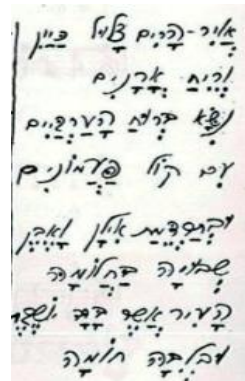 אֲוִיר-הָרִים צָלוּל כַּיַּיִן
וְרֵיחַ אֳרָנִים
נִשָּׂא בְּרוּחַ הָעַרְבַּיִם
עִם קוֹל פַּעֲמוֹנִים
וּבְתַרְדֵּמַת אִילָן וָאֶבֶן
שְׁבוּיָה בַּחֲלוֹמָהּ
הָעִיר אֲשֶׁר בָּדָד יוֹשֶׁבֶת
וּבְלִבָּהּ חוֹמָה